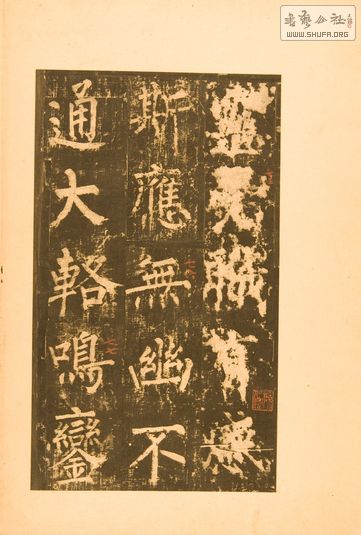 書藝公社
WWW.SHUFA.ORG
誠有感
斯應無幽不
通大輅鳴鑾